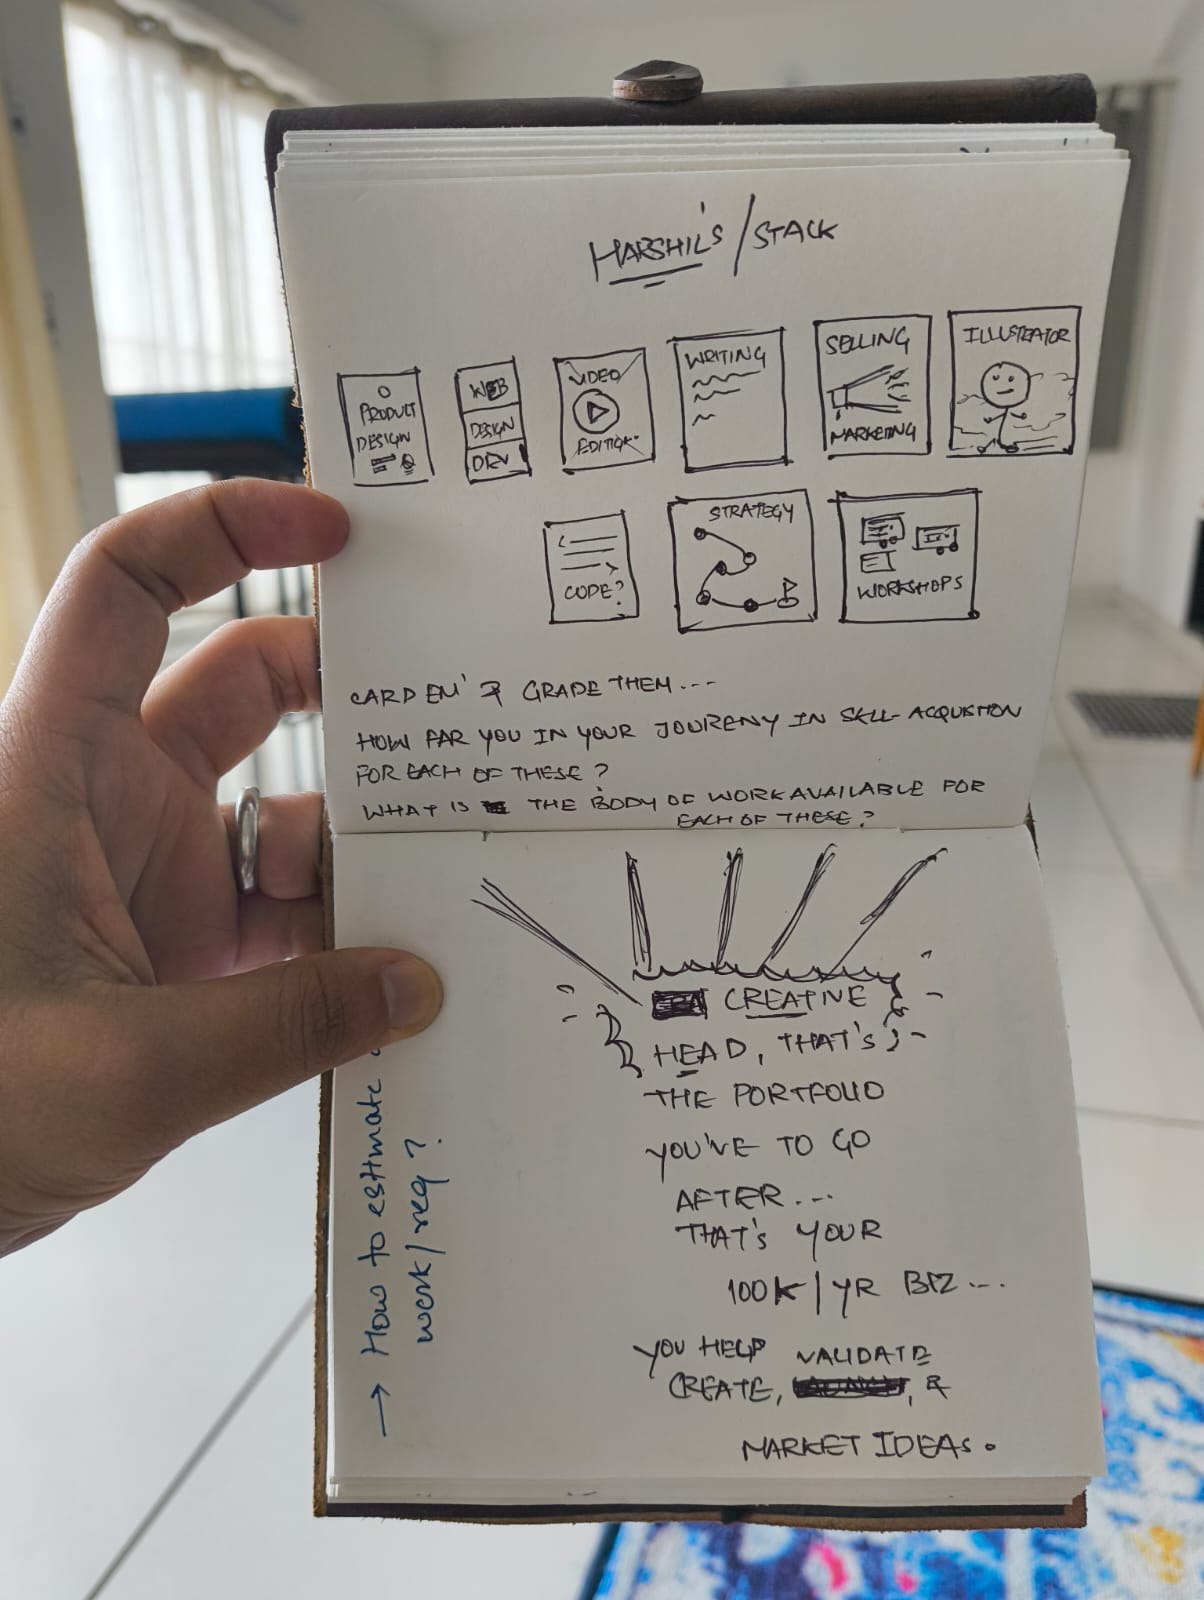 HARSHIL'S / STACK
PRODUCT
DESIGN
WEB
DESIGN
DEV
VIDEO
EDITIG
WRITING
SELLING
MARKETING
ILLUSTRATOR
CODE?
STRATEGY
WORKSHOPS
CARD EM' & GRADE THEM...
HOW FAR YOU IN YOUR JOURENY IN SKILL ACQUISTION
FOR EACH OF THESE?
WHAT IS THE BODY OF WORK AVAILABLE FOR
EACH OF THESE?
CREATIVE
HEAD, THAT'S
THE PORTFOLIO
YOU'VE TO GO
AFTER...
THAT'S YOUR
100K/YR BIZ...
YOU HELP VALIDATE
CREATE, , &
MARKET IDEAS.
→ How to estimate
work/req?